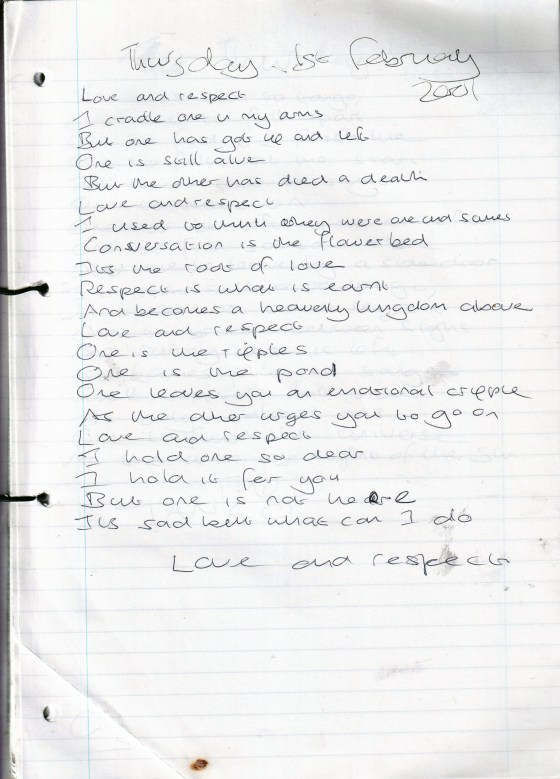 Thursday 1st February
2001
Love and respect
I cradle one in my arms
But one has got up and left
One is still alive
But the other has died a death
Love and respect
I used to think they were one and sames
Conversation is the flowerbed
Its the root of love
Respect is what is earnt
And becomes a heavenly kingdom above
Love and respect
One is the ripples
One is the pond
One leaves you an emotional cripple
As the other urges you to go on
Love and respect
I hold one so dear
I hold it for you
But one is not here
Its sad but what can I do
Love and respect